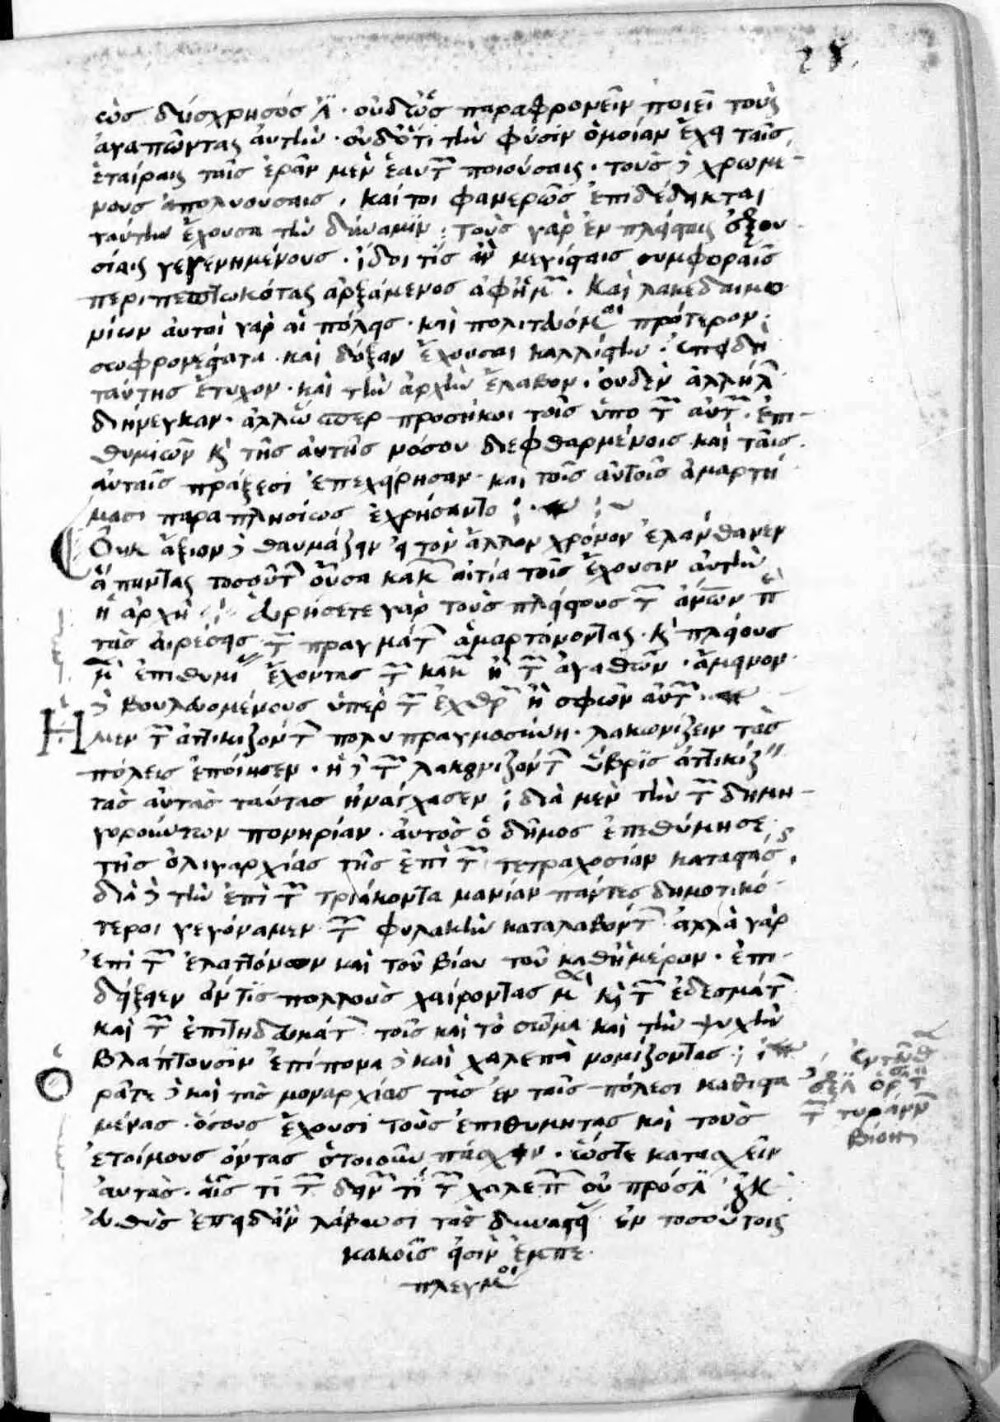 28
σὼς δύσχρηστός ἐστιν οὐδ' ὡς παραφρονεῖν ποιεῖ τοὺς
ἀγαπῶντας αὐτὴν οὐδ' ὅτι τὴν φύσιν ὁμοίαν ἔχει ταῖς
ἑταίραις ταῖς ἐρᾶν μὲν ἑαυτῶν ποιούσαις τοὺς δὲ χρωμέ-
νους ἀπολυούσαις καίτοι φανερῶς ἐπιδέδεικται
ταύτην ἔχουσα τὴν δύναμιν τοὺς γὰρ ἐν πλείσταις ἐξου
σίαις γεγενημένους ἴδοι τις ἂν μεγίσταις συμφοραῖς
περιπεπτωκότας ἀρξάμενος ἀφ' ἡμῶν καὶ λακεδαιμο
νίων αὐταὶ γὰρ αἱ πόλεις καὶ πολιτευόμεναι πρότερον
σωφρονέστατα καὶ δόξαν ἔχουσαι καλλίστην ἐπειδὴ
ταύτης ἔτυχον καὶ τὴν ἀρχὴν ἔλαβον οὐδὲν ἀλλήλων
διήνεγκαν ἀλλ' ὥσπερ προσήκει τοῖς ὑπὸ τῶν αὐτῶν ἐπι-
θυμιῶν καὶ τῆς αὐτῆς νόσου διεφθαρμένοις καὶ ταῖς
αὐταῖς πράξεσι ἐπεχείρησαν καὶ τοῖς αὐτοῖς ἁμαρτή
μασι παραπλησίοις ἐχρήσαντο
Οὐκ ἄξιον δὲ θαυμάζειν εἰ τὸν ἄλλον χρόνον ἐλάνθανεν
ἅπαντας τοσούτων οὖσα κακῶν αἰτία τοῖς ἔχουσιν αὐτὴν
ἡ ἀρχή εὑρήσετε γὰρ τοὺς πλείστους τῶν ἀνθρώπων περὶ
τὰς αἱρέσεις τῶν πραγμάτων ἁμαρτάνοντας καὶ πλείους
μὲν ἐπιθυμίας ἔχοντας τῶν κακῶν ἢ τῶν ἀγαθῶν ἄμεινον
δὲ βουλευομένους ὑπὲρ τῶν ἐχθρῶν ἢ σφῶν αὐτῶν
Ἡ μὲν τῶν ἀττικιζόντων πολυπραγμοσύνη λακωνίζειν τὰς
πόλεις ἐποίησεν ἡ δὲ τῶν λακωνιζόντων ὕβρις ἀττικίζειν
τὰς αὐτὰς ταύτας ἠνάγκασεν διὰ μὲν τὴν τῶν δημη-
γορούντων πονηρίαν αὐτὸς ὁ δῆμος ἐπεθύμησε
τῆς ὀλιγαρχίας τῆς ἐπὶ τῶν τετρακοσίων καταστάσης
διὰ δὲ τὴν ἐπὶ τῶν τριάκοντα μανίαν πάντες δημοτικώ
τεροι γεγόναμεν τῶν φυλακὴν καταλαβόντων ἀλλὰ γὰρ
ἐπὶ τῶν ἐλαττόνων καὶ τοῦ βίου τοῦ καθ' ἡμέραν ἐπι-
δείξειεν ἄν τις πολλοὺς χαίροντας μὲν καὶ τῶν ἐδεσμάτων
καὶ τῶν ἐπιτηδευμάτων τοῖς καὶ τὸ σῶμα καὶ τὴν ψυχὴν
βλάπτουσιν ἐπίπονα δὲ καὶ χαλεπὰ νομίζοντας
Ὁρᾶτε δὲ καὶ τὰς μοναρχίας τὰς ἐν ταῖς πόλεσι καθιστα
μένας ὅσους ἔχουσι τοὺς ἐπιθυμητὰς καὶ τοὺς
ἑτοίμους ὄντας ὁτιοῦν πάσχειν ὥστε κατασχεῖν
αὐτάς αἷς τί τῶν δεινῶν τί τῶν χαλεπῶν οὐ πρόσεστιν οὐκ
εὐθὺς ἐπειδὰν λάβωσι τὰς δυναστείας ἐν τοσούτοις
κακοῖς εἰσὶν ἐμπε
πλεγμένοι
τῶν τυράννων
βίου